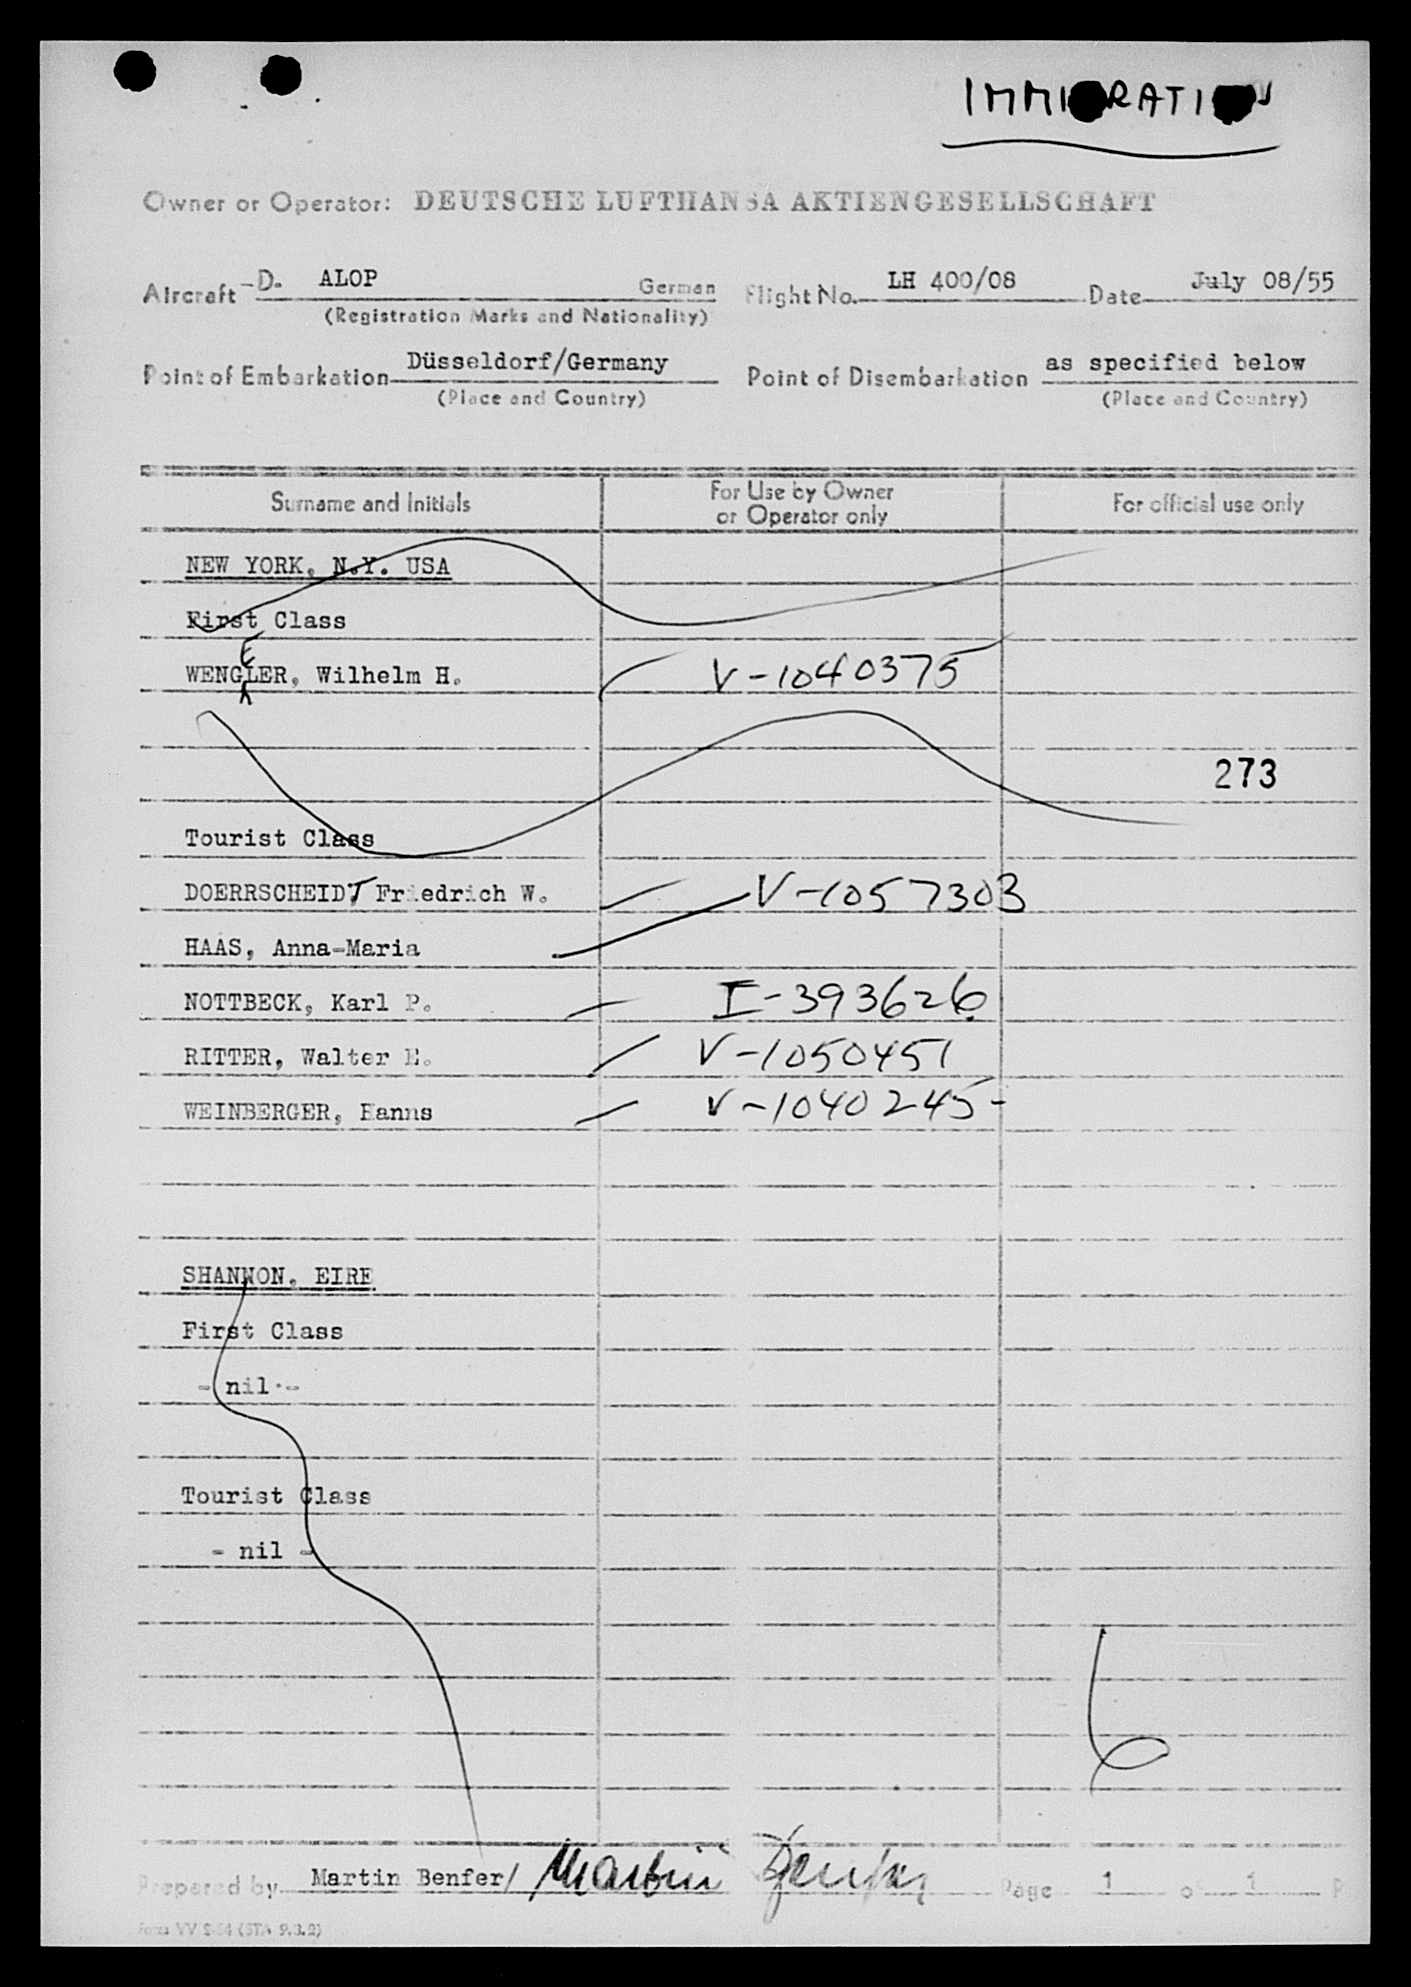 IMMIGRATION
Owner or Operator: DEUTSCHE LUFTHANSA AKTIENGESELLSCHAFT
Aircraft -D. ALOP German Flight No. LH 400/08 Date July 08/55
(Registration Marks and Nationality)
Point of Embarkation Düsseldorf/Germany Point of Disembarkation as specified below
(Place and Country) (Place and Country)
Surname and Initials For Use by Owner or Operator only For official use only
NEW YORK, N.Y. USA
First Class
E
WENGLER, Wilhelm H. V-1040375
273
Tourist Class
DOERRSCHEIDT Friedrich W. V-1057303
HAAS, Anna-Maria
NOTTBECK, Karl P. I-393626
RITTER, Walter E. V-1050451
WEINBERGER, Hanns V-1040245-
SHANNON, EIRE
First Class
- nil -
Tourist Class
- nil -
6
Prepared by Martin Benfer/ Martin Benfer Page 1 of 1
Form VV 2-54 (STA 9.3.2)